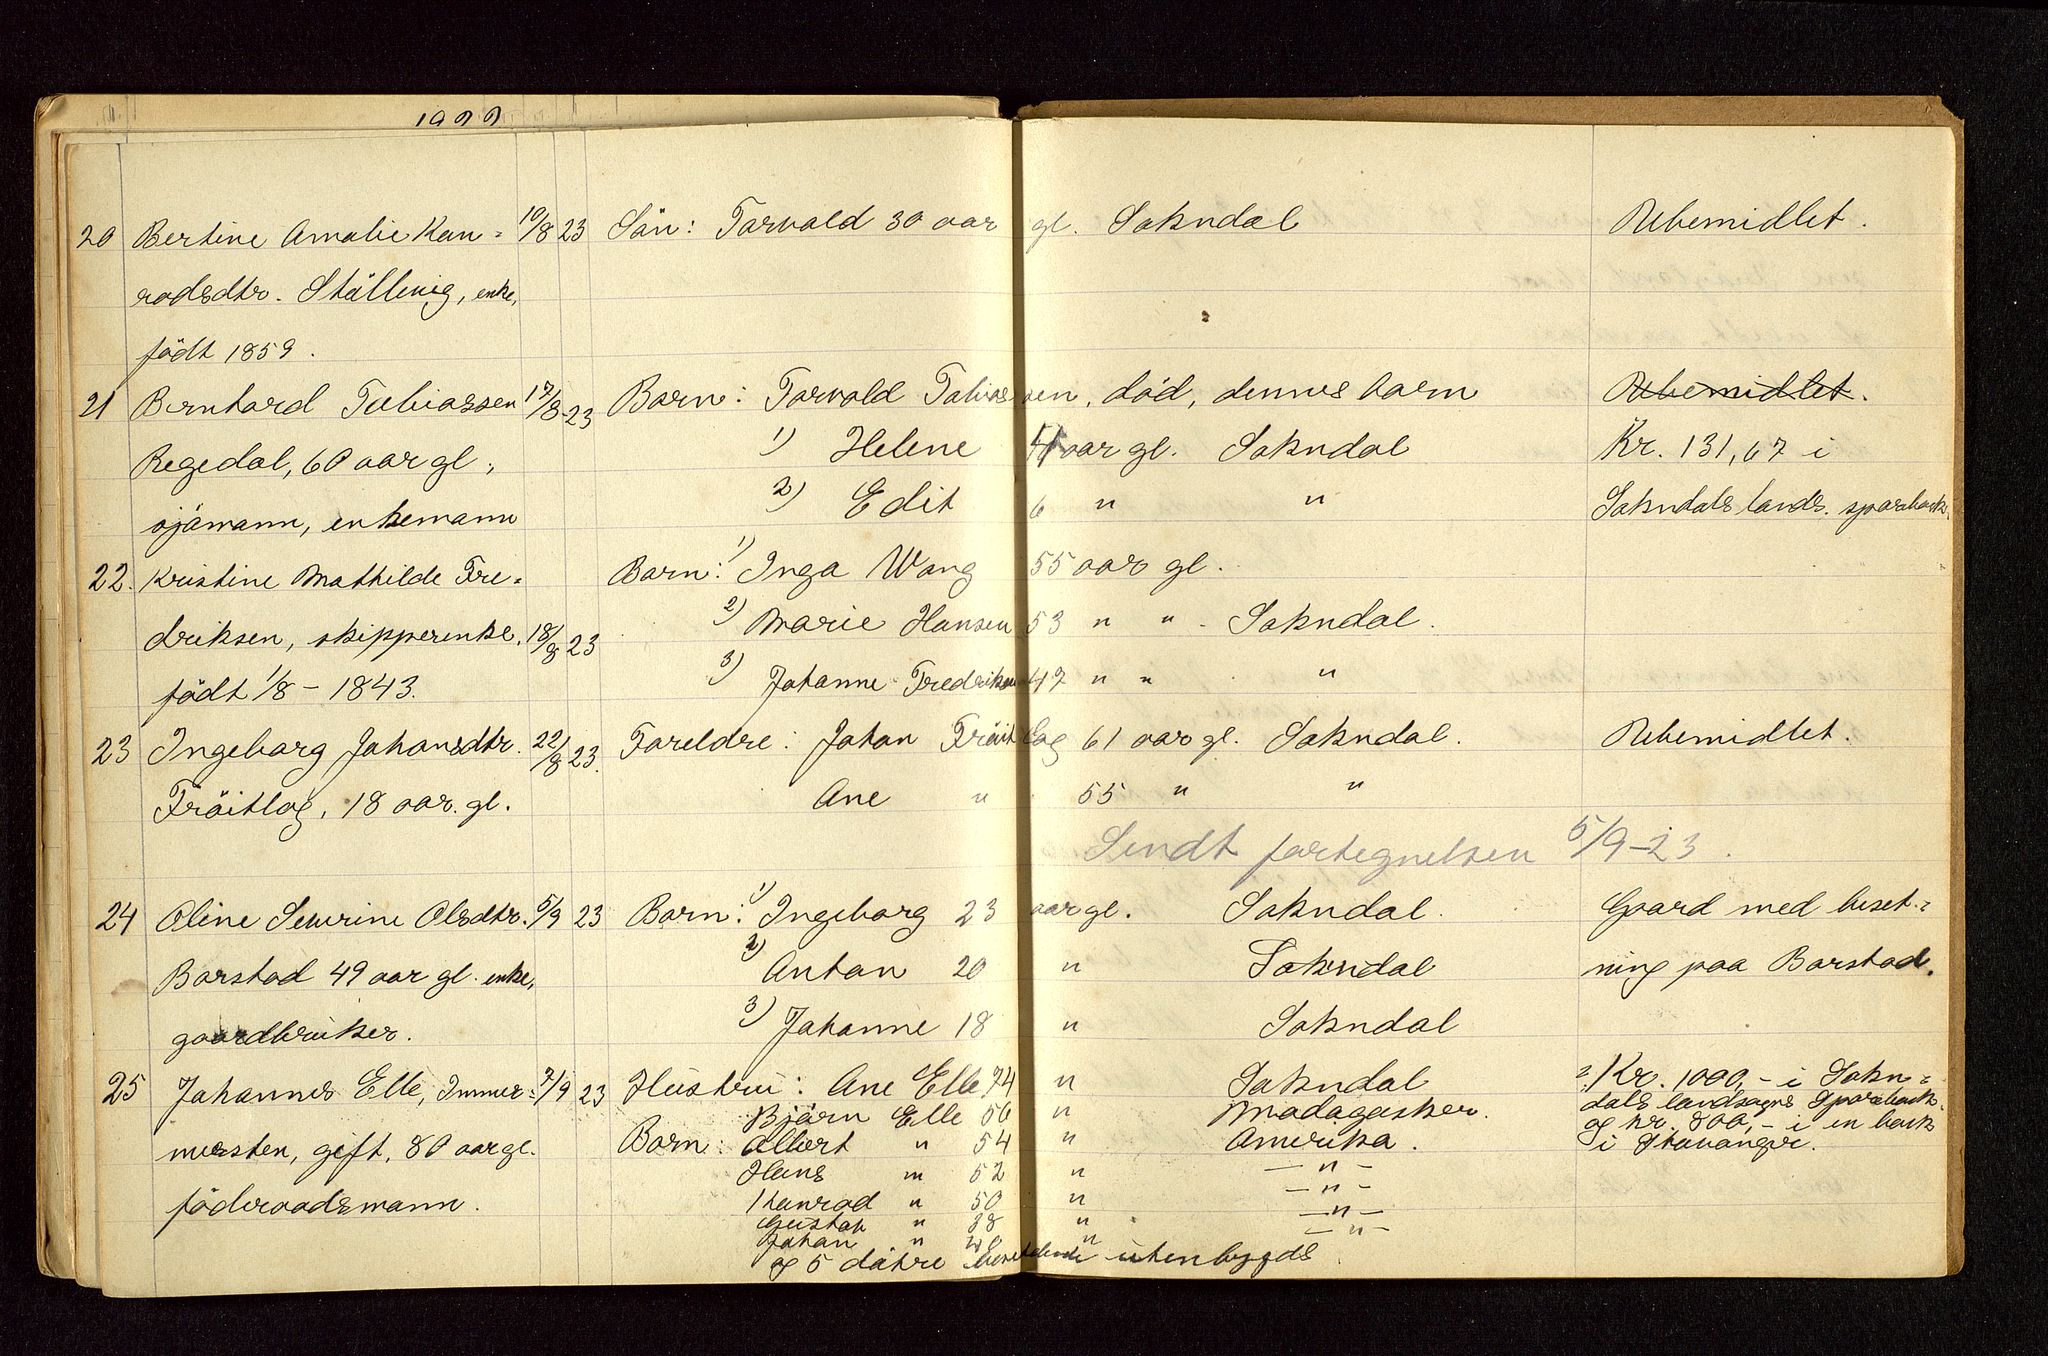 20 Bertine Amalie Kon- 10/8 23 Sön: Torvald 30 aar gl. Sokndal Ubemidlet.
radsdtr. Ställing, enke,
födt 1859.
21 Bernhard Tobiassen 17/8-23 Barn: Torvald Tobiassen, död, dennes barn Ubemidlet.
Regedal, 60 aar gl., 1) Helene aar gl. Sokndal Kr. 131,67 i
sjömann, enkemann 2) Edit 6 " " Sokndals lands. sparebank
22. Kristine Mathilde Fre- Barn: 1) Inga Wang 55 aar gl.
driksen, skipperenke, 18/8 23 2) Marie Hansen 53 " " Sokndal.
födt 1/8 - 1843. 3) Johanne Fredriksen 47 " " "
23 Ingeborg Johansdtr. 22/8 23. Foreldre: Johan Fröitlog 61 aar gl. Sokndal. Ubemidlet.
Fröitlog, 18 aar. gl. Ane " 55 " "
Sendt fortegnelsen 5/9-23.
24 Oline Severine Olsdtr. 5/9 23 Barn: 1) Ingeborg 23 aar gl. Sokndal. Gaard med beset-
Barstad 49 aar gl. enke, 2) Anton 20 " Sokndal ning paa Barstad.
gaardbruker. 3) Johanne 18 " Sokndal
25 Johannes Elle, Immer- 7/9 23 Hustru: Ane Elle 74 " Sokndal Kr. 1000,- i Sokn-
Björn Elle 56 " Madagasker. dals landsogns Sparebank
mersten, gift, 80 aar gl. Barn: Albert " 54 " Amerika. og kr. 800,- i en bank
Hans " 52 " -"- i Stavanger.
föderaadsmann. Konrad " 50 " -"-
Gustav " 38 " -"-
Johan " " -"-
og 5 dötre utenbygds.